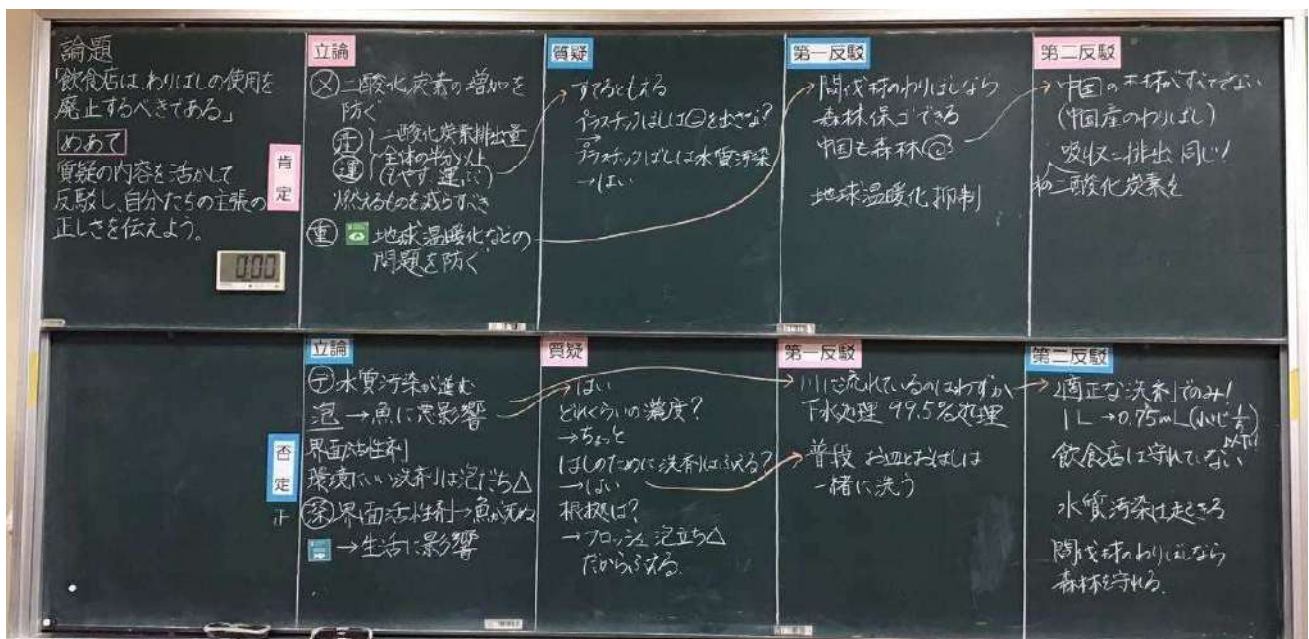 論題
「飲食店は、わりばしの使用を
廃止するべきである」
めあて
質疑の内容を活かして
反駁し、自分たちの主張の
正しさを伝えよう。
0:00
肯定
立論
メ 二酸化炭素の増加を
防ぐ
二酸化炭素排出量
全体の半分以上
(もやす 運ぶ)
燃えるものを減らすべき
重 地球温暖化などの
問題を防ぐ
質疑
すてるともえる
プラスチックはしは を出さな?
→
プラスチックばしは水質汚染
→はい
第一反駁
間伐材のわりばしなら
森林保ゴできる
中国も森林
地球温暖化抑制
第二反駁
中国の木材がすべてでない
(中国産のわりばし)
吸収=排出 同じ!
二酸化炭素を
否定
正
立論
デ 水質汚染が進む
泡 →魚に悪影響
界面活性剤
環境にいい洗剤は泡だち△
深 界面活性剤→魚が死ぬ
→生活に影響
質疑
はい
どれくらいの濃度?
→ちょっと
はしのために洗剤はふえる?
→はい
根拠は?
→フロッシュ 泡立ち△
だからふえる.
第一反駁
川に流れているのはわずか
下水処理 99.5%処理
普段 お皿とおはしは
一緒に洗う
第二反駁
適正な洗剤でのみ!
1L→0.75mL
飲食店は守れていない
水質汚染は起きる
間伐材のわりばしなら
森林を守れる.